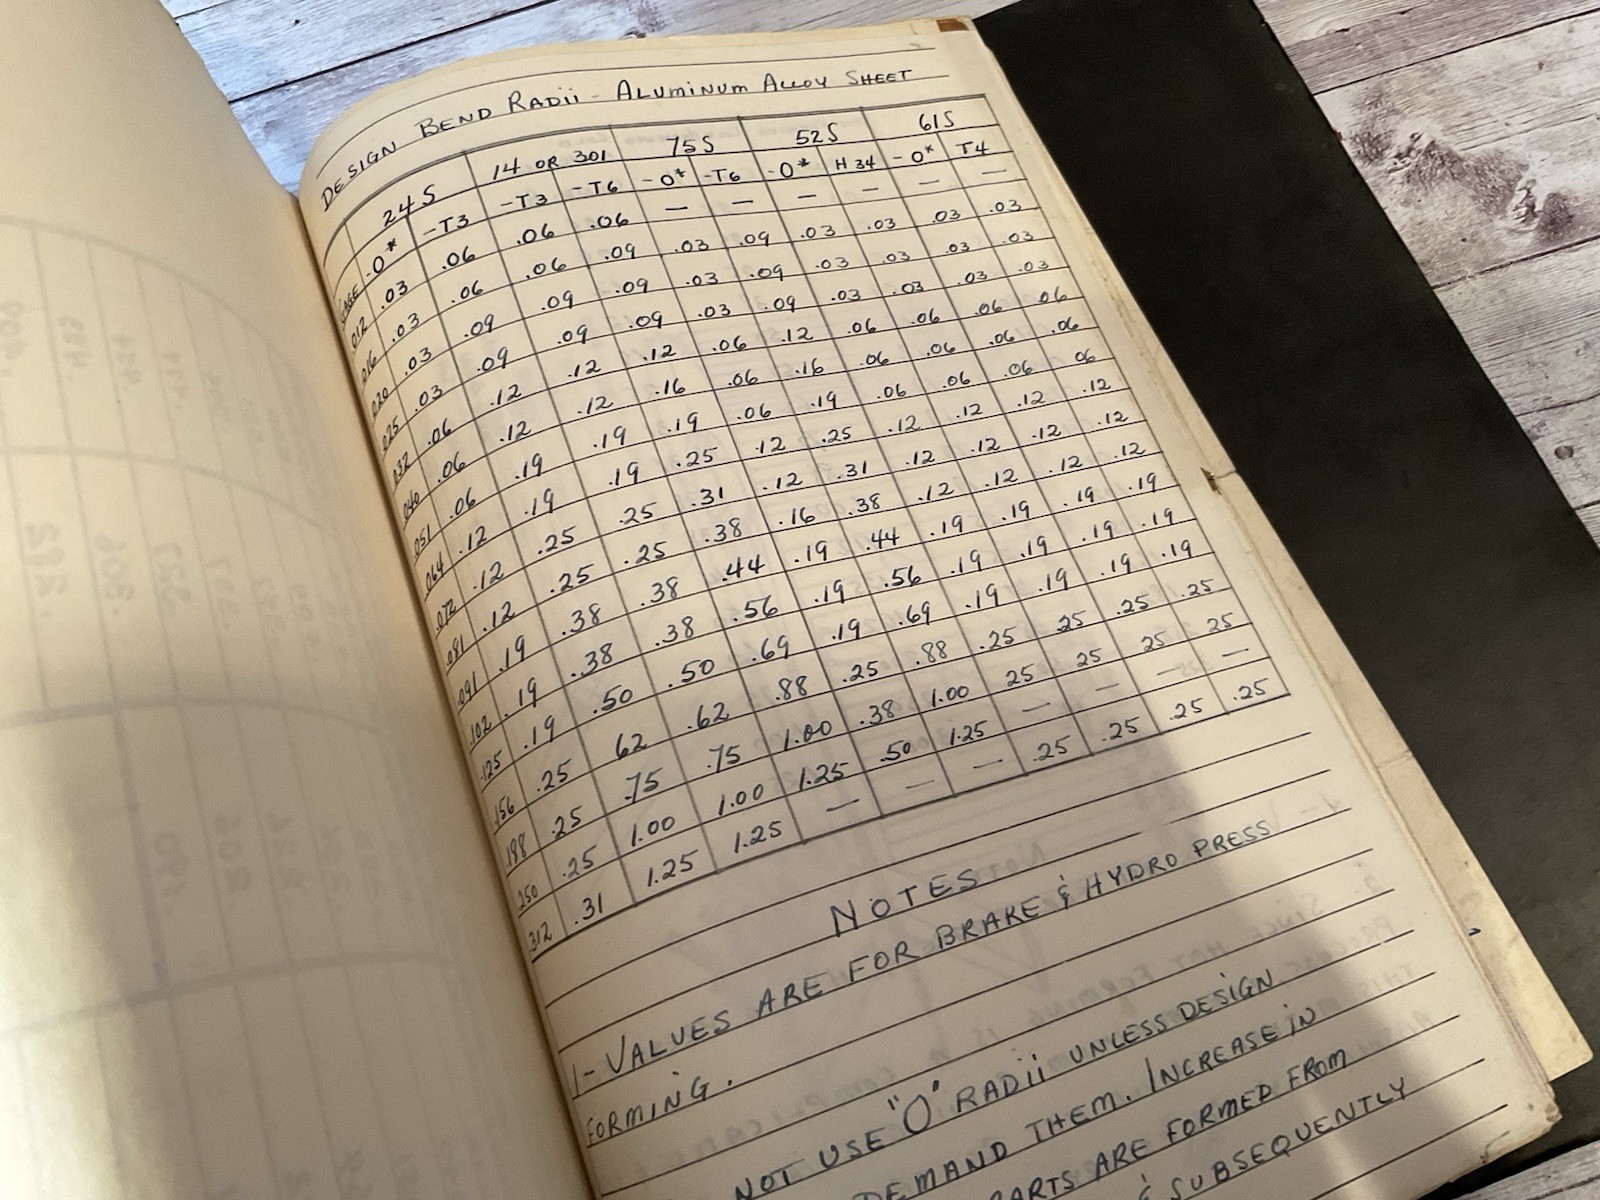 DESIGN BEND RADII - ALUMINUM ALLOY SHEET
24S 14 OR 301 75S 52S 61S
GAGE -O* -T3 -T3 -T6 -O* -T6 -O* H34 -O* T4
.012 .03 .06 .06 .06 — — — — — —
.016 .03 .06 .06 .09 .03 .09 .03 .03 .03 .03
.020 .03 .09 .09 .09 .03 .09 .03 .03 .03 .03
.025 .03 .09 .09 .09 .03 .09 .03 .03 .03 .03
.032 .06 .12 .12 .12 .06 .12 .06 .06 .06 .06
.040 .06 .12 .12 .16 .06 .16 .06 .06 .06 .06
.051 .06 .19 .19 .19 .06 .19 .06 .06 .06 06
.064 .12 .19 .19 .25 .12 .25 .12 .12 .12 .12
.072 .12 .25 .25 .31 .12 .31 .12 .12 .12 .12
.081 .12 .25 .25 .38 .16 .38 .12 .12 .12 .12
.091 .19 .38 .38 .44 .19 .44 .19 .19 .19 .19
.102 .19 .38 .38 .56 .19 .56 .19 .19 .19 .19
.125 .19 .50 .50 .69 .19 .69 .19 .19 .19 .19
.156 .25 62 .62 .88 .25 .88 .25 25 .25 .25
.188 .25 .75 .75 1.00 .38 1.00 25 25 25 25
.250 .25 1.00 1.00 1.25 .50 1.25 — — — —
.312 .31 1.25 1.25 — — — .25 .25 .25 .25
NOTES
1- VALUES ARE FOR BRAKE & HYDRO PRESS
FORMING.
NOT USE "O" RADII UNLESS DESIGN
DEMAND THEM. INCREASE IN
PARTS ARE FORMED FROM
& SUBSEQUENTLY